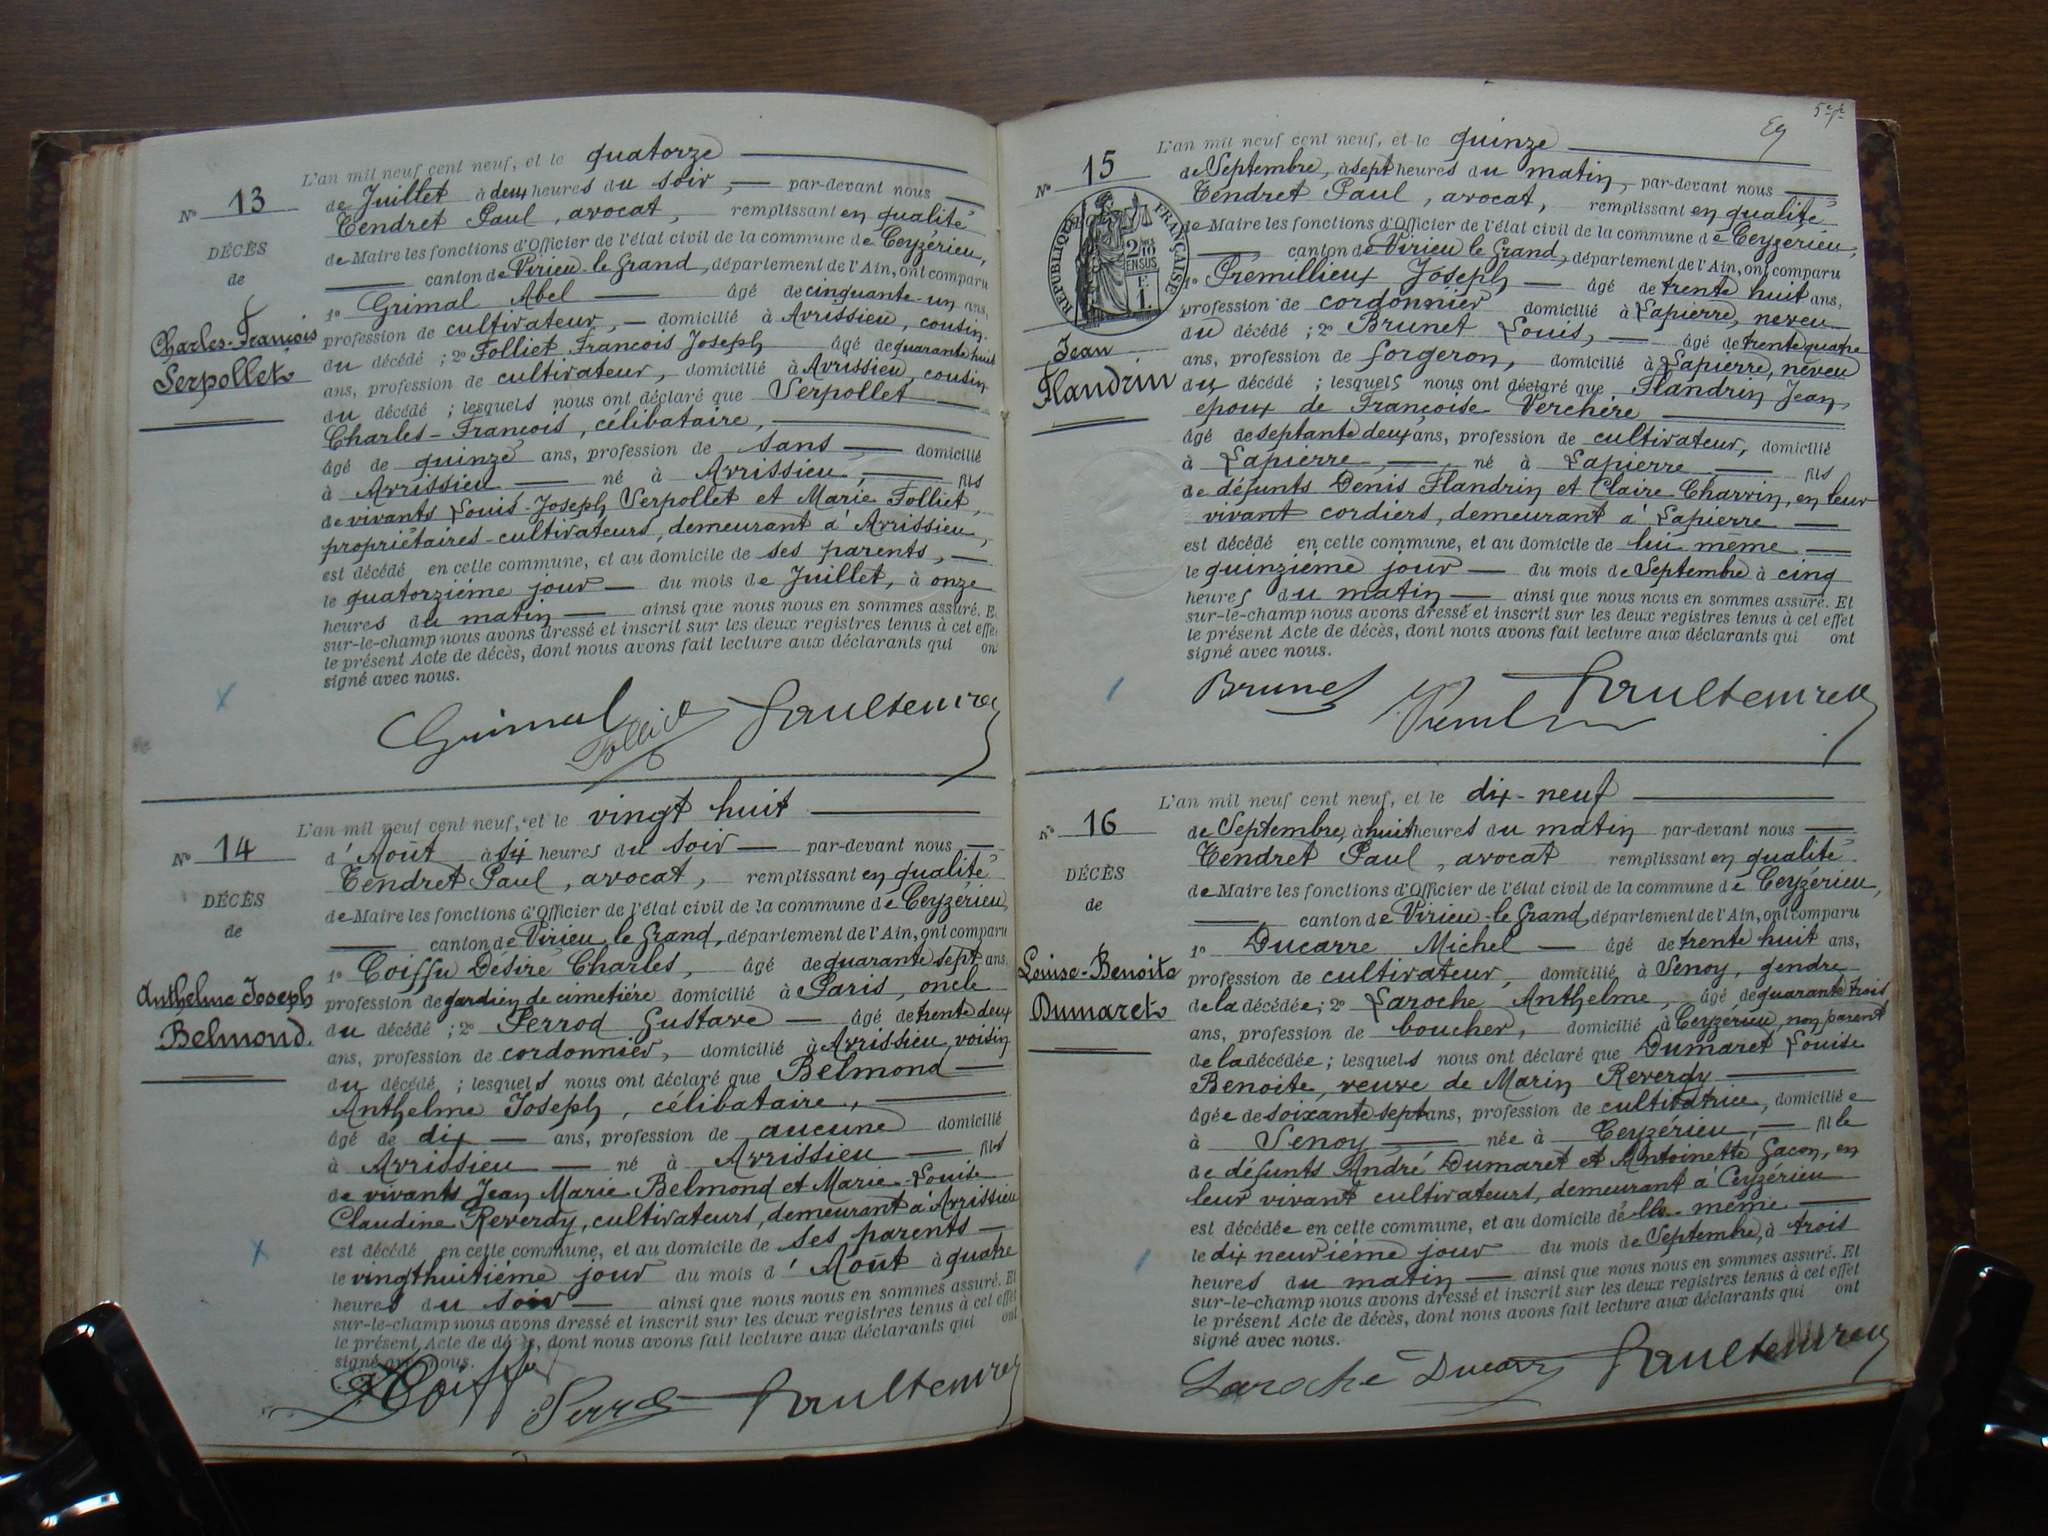 N° 13
DÉCÈS
de
Charles-François
Serpollet
L'an mil neuf cent neuf, et le quatorze
de Juillet à deux heures du soir, par-devant nous
Tendret Paul, avocat, remplissant en qualité
de Maire les fonctions d'Officier de l'état civil de la commune de Ceyzérieu,
canton de Virieu-le-Grand, département de l'Ain, ont comparu
1° Grimal Abel âgé de cinquante-un ans,
profession de cultivateur, domicilié à Avrissieu, cousin
du décédé ; 2° Folliet François Joseph âgé de quarante huit
ans, profession de cultivateur, domicilié à Avrissieu, cousin
du décédé ; lesquels nous ont déclaré que Serpollet
Charles-François, célibataire,
âgé de quinze ans, profession de sans domicilié
à Avrissieu né à Avrissieu, fils
de vivants Louis-Joseph Serpollet et Marie Folliet,
propriétaires-cultivateurs, demeurant à Avrissieu,
est décédé en cette commune, et au domicile de ses parents,
le quatorzième jour du mois de Juillet, à onze
heures du matin ainsi que nous nous en sommes assuré. E
sur-le-champ nous avons dressé et inscrit sur les deux registres tenus à cet effe
le présent Acte de décès, dont nous avons fait lecture aux déclarants qui on
signé avec nous.
Grimal Folliet
N° 14
DÉCÈS
de
Anthelme Joseph
Belmond.
L'an mil neuf cent neuf, et le vingt huit
d'Août à six heures du soir par-devant nous
Tendret Paul, avocat, remplissant en qualité
de Maire les fonctions d'Officier de l'état civil de la commune de Ceyzérieu,
canton de Virieu le Grand, département de l'Ain, ont comparu
1° Coiffu Désiré Charles, âgé de quarante sept ans
profession de gardien de cimetière domicilié à Paris, oncle
du décédé ; 2° Perrod Gustave âgé de trente deux
ans, profession de cordonnier, domicilié à Avrissieu, voisin
du décédé ; lesquels nous ont déclaré que Belmond
Anthelme Joseph, célibataire,
âgé de dix ans, profession de aucune domicilié
à Avrissieu né à Avrissieu fils
de vivants Jean Marie Belmond et Marie-Louise
Claudine Reverdy, cultivateurs, demeurant à Avrissieu
est décédé en cette commune, et au domicile de ses parents
le vingt huitième jour du mois d'Août à quatre
heures du soir ainsi que nous nous en sommes assuré. Et
sur-le-champ nous avons dressé et inscrit sur les deux registres tenus à cet effet
le présent Acte de décès, dont nous avons fait lecture aux déclarants qui ont
signé avec nous.
Coiffu Perrod
N° 15
RÉPUBLIQUE FRANÇAISE
2/10 EN SUS
F. 1.
Jean
Flandrin
L'an mil neuf cent neuf, et le quinze
de Septembre, à sept heures du matin, par-devant nous
Tendret Paul, avocat, remplissant en qualité
de Maire les fonctions d'Officier de l'état civil de la commune de Ceyzérieu,
canton de Virieu le Grand, département de l'Ain, ont comparu
1° Premillieux Joseph âgé de trente huit ans,
profession de cordonnier domicilié à Lapierre, neveu
du décédé ; 2° Brunet Louis, âgé de trente quatre
ans, profession de forgeron, domicilié à Lapierre, neveu
du décédé ; lesquels nous ont déclaré que Flandrin Jean,
époux de Françoise Verchère
âgé de septante deux ans, profession de cultivateur, domicilié
à Lapierre né à Lapierre fils
de défunts Denis Flandrin et Claire Charvin, en leur
vivant cordiers, demeurant à Lapierre
est décédé en cette commune, et au domicile de lui même
le quinzième jour du mois de Septembre à cinq
heures du matin ainsi que nous nous en sommes assuré. Et
sur-le-champ nous avons dressé et inscrit sur les deux registres tenus à cet effet
le présent Acte de décès, dont nous avons fait lecture aux déclarants qui ont
signé avec nous.
Brunet
N° 16
DÉCÈS
de
Louise-Benoite
Dumaret
L'an mil neuf cent neuf, et le dix-neuf
de Septembre, à huit heures du matin par-devant nous
Tendret Paul, avocat remplissant en qualité
de Maire les fonctions d'Officier de l'état civil de la commune de Ceyzérieu,
canton de Virieu-le Grand, département de l'Ain, ont comparu
1° Ducarre Michel âgé de trente huit ans,
profession de cultivateur, domicilié à Senoy, gendre
de la décédée ; 2° Laroche Anthelme, âgé de quarante trois
ans, profession de boucher, domicilié à Ceyzérieu, non parent
de la décédée ; lesquels nous ont déclaré que Dumaret Louise
Benoite, veuve de Marin Reverdy
âgée de soixante sept ans, profession de cultivatrice, domiciliée
à Senoy née à Ceyzérieu, fille
de défunts André Dumaret et Antoinette Gacon, en
leur vivant cultivateurs, demeurant à Ceyzérieu
est décédée en cette commune, et au domicile d'elle même
le dix neuvième jour du mois de Septembre, à trois
heures du matin ainsi que nous nous en sommes assuré. Et
sur-le-champ nous avons dressé et inscrit sur les deux registres tenus à cet effet
le présent Acte de décès, dont nous avons fait lecture aux déclarants qui ont
signé avec nous.
Laroche Ducarre